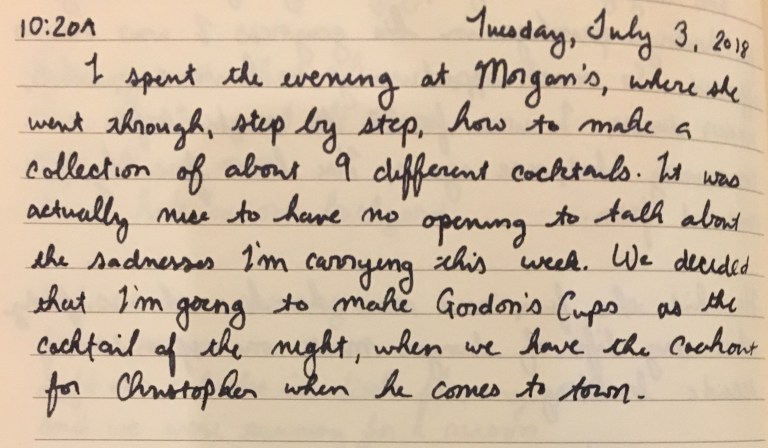 10:20A Tuesday, July 3, 2018
I spent the evening at Morgan's, where she
went through, step by step, how to make a
collection of about 9 different cocktails. It was
actually nice to have no opening to talk about
the sadnesses I'm carrying this week. We decided
that I'm going to make Gordon's Cups as the
cocktail of the night, when we have the cookout
for Christopher when he comes to town.